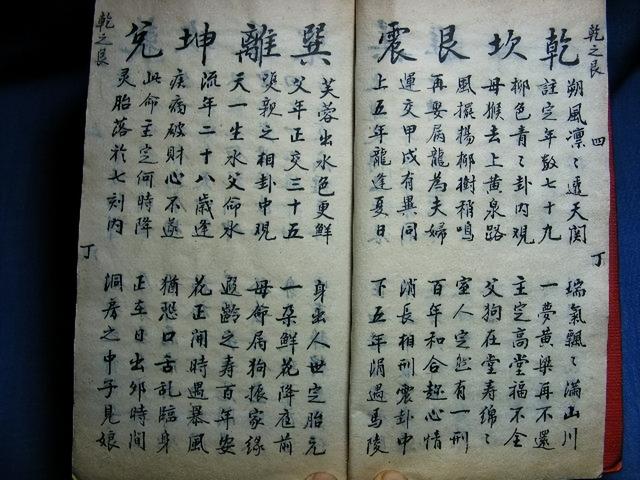 乾之艮 四 丁
乾坎艮震
朔風凛〻透天関 瑞氣飄〻滿山川
註定年数七十九 一夢黄粱再不還
柳色青〻卦内观 主定高堂福不全
母猴去上黄泉路 父狗在堂寿綿〻
風擺揚柳樹稍鳴 室人定然有一刑
再娶属龍為夫婦 百年和合趂心情
運交甲戌有異同 消長相刑震卦中
上五年龍逢夏日 下五年涓遇馬陵
巽離坤兑
芙蓉出水色更鮮 身出人世定胎元
父年正交三十五 一朶鮮花降庭前
雙親之相卦中現 母命属狗振家缘
天一生水父命水 遐齡之寿百年安
流年二十八歲逢 花正開時遇暴風
疾病破財心不遂 猶恐口舌乱臨身
此命主定何時降 正车日出卯時間
灵胎落於七刻内 洞房之中子見娘
乾之艮 丁